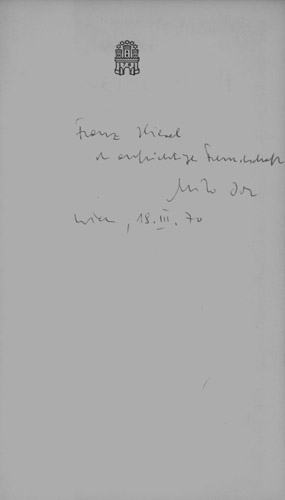 Franz Kiesel
in aufrichtiger Freundschaft
Milo Dor
Wien, 18. III. 70